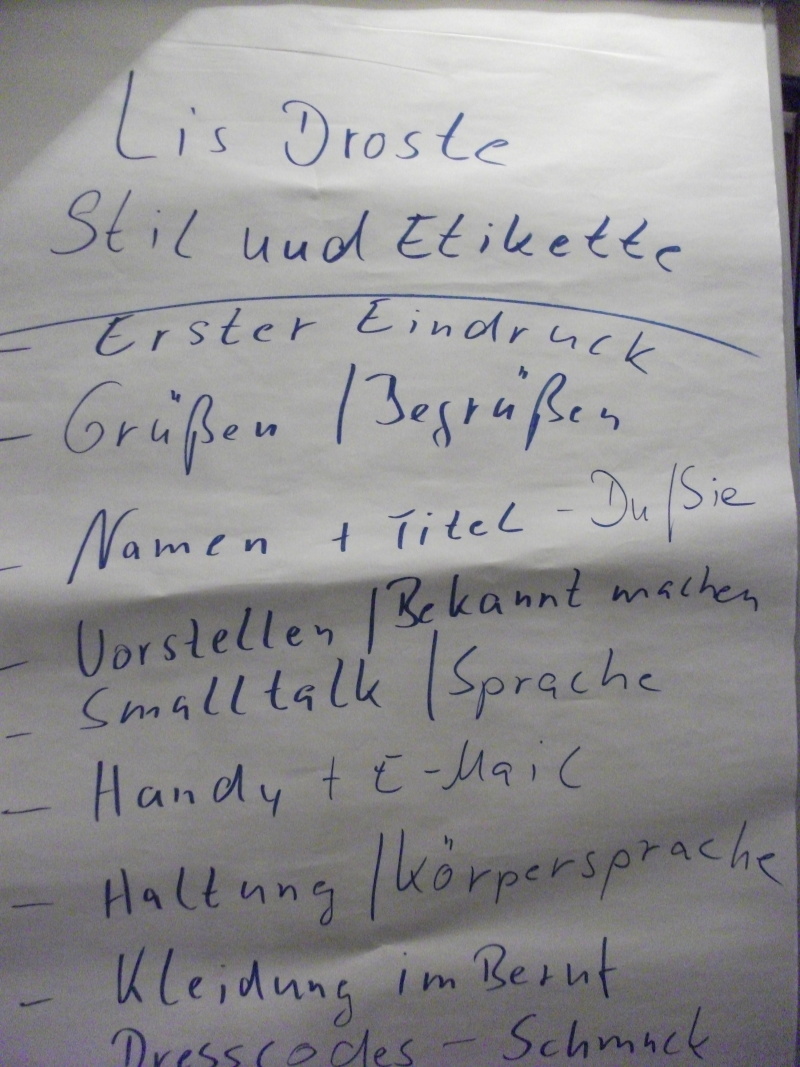 Lis Droste
Stil und Etikette
- Erster Eindruck
- Grüßen / Begrüßen
- Namen + Titel - Du/Sie
- Vorstellen / Bekannt machen
- Smalltalk / Sprache
- Handy + E-Mail
- Haltung / Körpersprache
- Kleidung im Beruf
Dresscodes - Schmuck